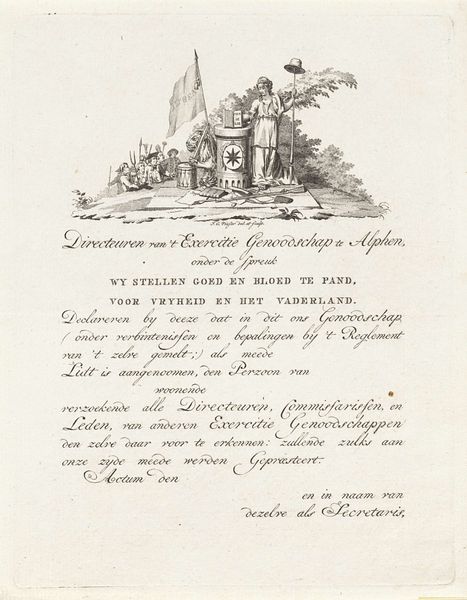 Directeuren van 't Exercitie Genoodschap te Alphen,
onder de Spreuk
WY STELLEN GOED EN BLOED TE PAND,
VOOR VRYHEID EN HET VADERLAND.
Declareren by deeze dat in dit ons Genoodschap
(onder verbintenissen en bepalingen by 't Reglement
van 't zelve gemelt;) als meede
Lidt is aangenoomen, den Perzoon van
woonende
verzoekende alle Directeuren, Commissarissen, en
Leden, van anderen Exercitie Genoodschappen
den zelve daar voor te erkennen: zullende zulks aan
onze zyde meede werden Gepræsteert.
Actum den
en in naam van
dezelve als Secretaris,